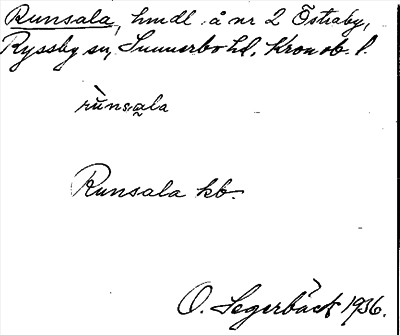 Runsala, hmdl. å nr 2 Östraby,
Ryssby sn, Sunnerbo hd, Kronob. l.
rùnsa̰la
Runsala kb.
O. Segerbäck 1936.